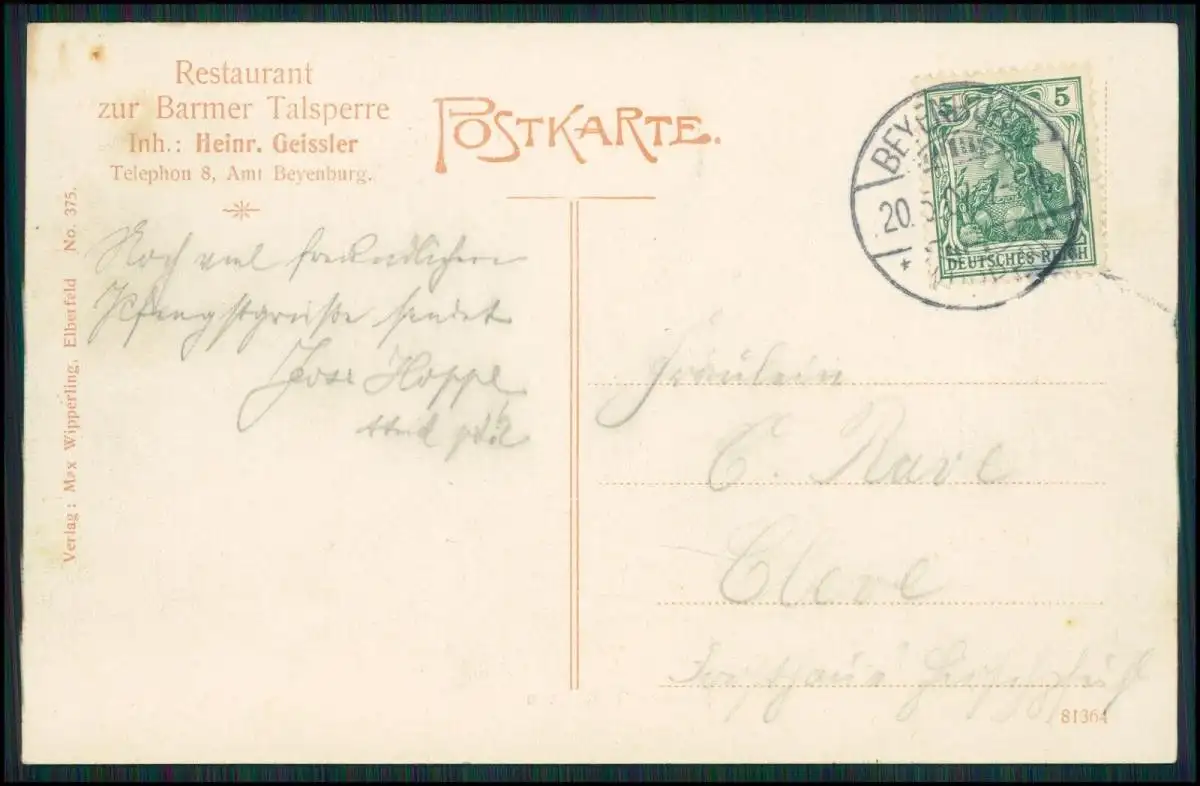 Restaurant
zur Barmer Talsperre
Inh.: Heinr. Geissler
Telephon 8, Amt Beyenburg.
POSTKARTE.
5 5
DEUTSCHES REICH
BEYENBURG
20.5.
Verlag: Max Wipperling, Elberfeld No. 375.
Noch viel freundlichen
Pfingstgrüße sendet
Hoppe
Fräulein
C. Rave
Cleve
Forsthaus
81364